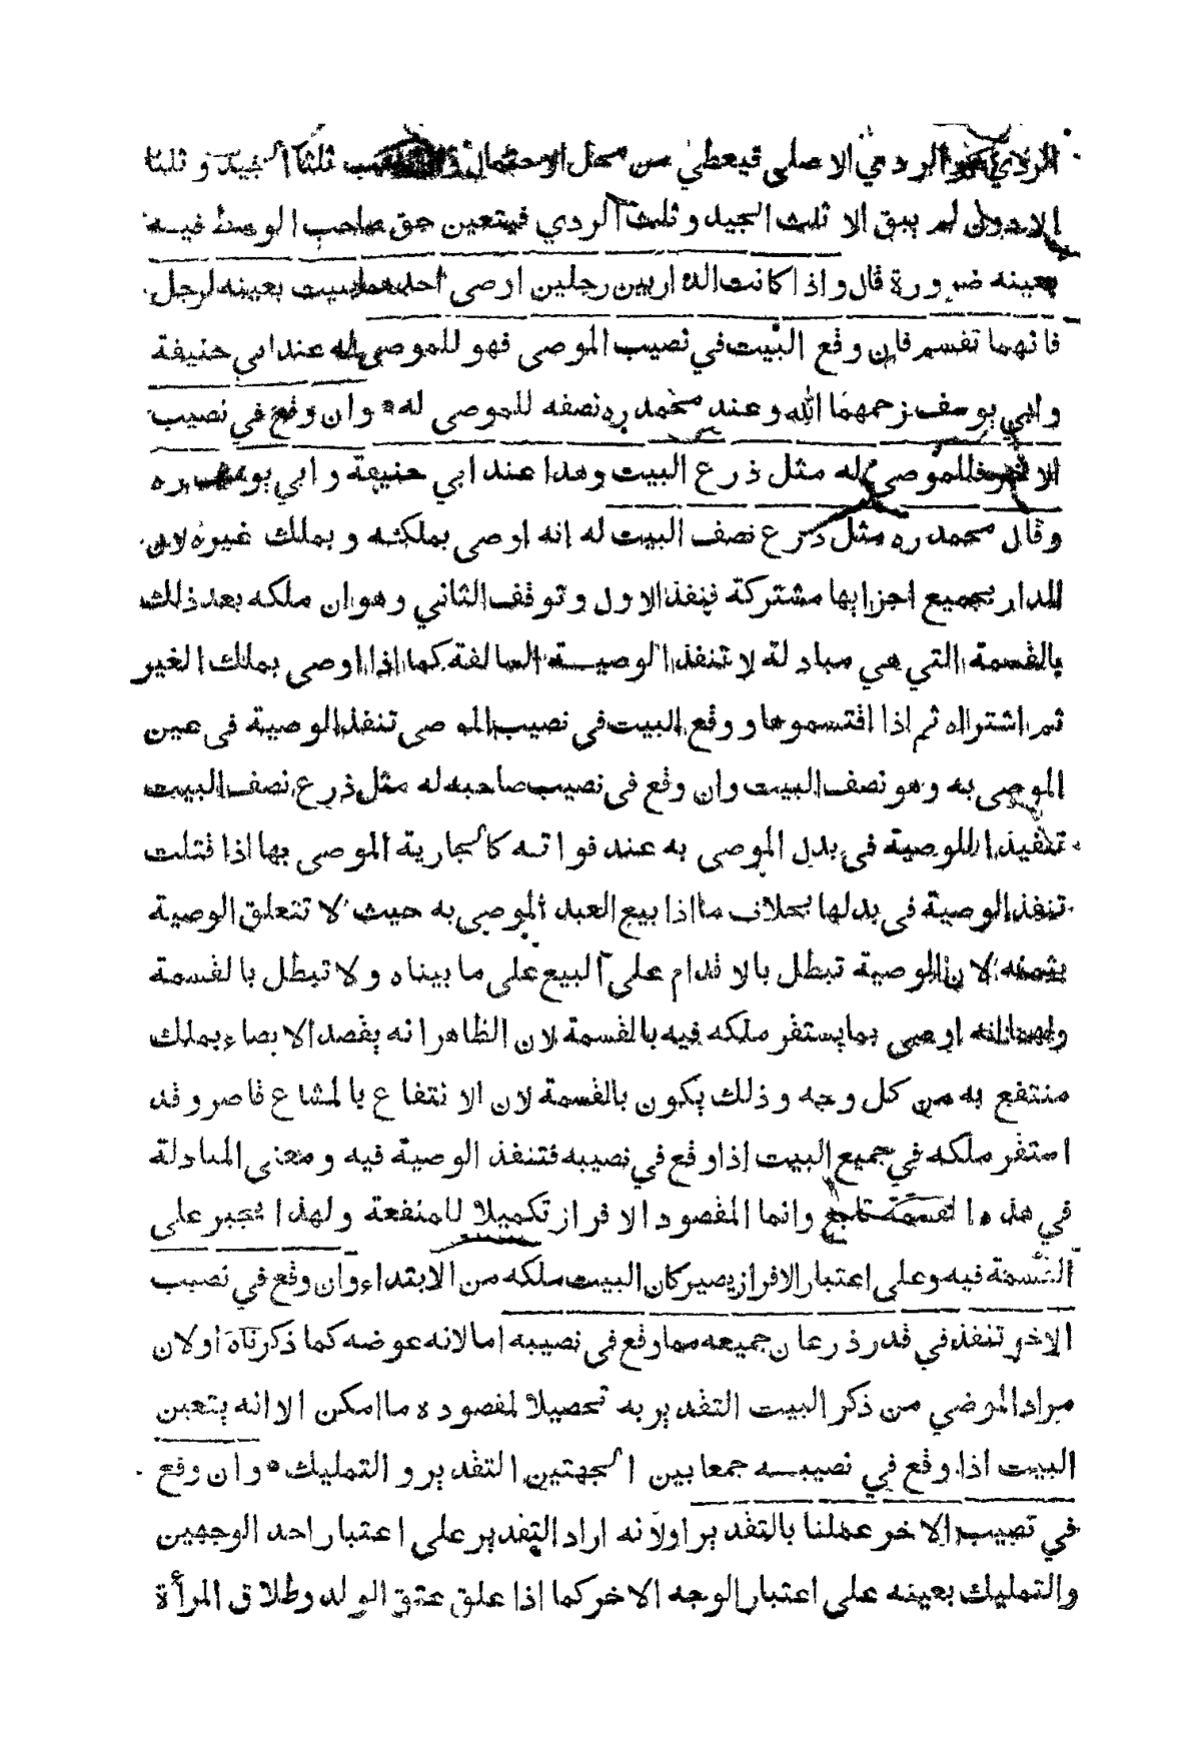 الردي الاصلي فيعطي من محل الاحتمال ثلثا الجيد و ثلثا
الادون لم يبق الا ثلث الجيد و ثلث الردي فيتعين حق صاحب الوسط فيه
بعينه ضرورة قال و اذا كانت الدار بين رجلين اوصى احدهما ببيت بعينه لرجل
فانهما تقسم فان وقع البيت في نصيب الموصي فهو للموصى له عند ابي حنيفة
وابي يوسف رحمهما الله وعند محمد ره نصفه للموصى له * وان وقع في نصيب
الاخر فللموصى له مثل ذرع البيت وهذا عند ابي حنيفة و ابي يوسف ره
وقال محمد ره مثل ذرع نصف البيت له انه اوصى بملكه و بملك غيره لان
الدار بجميع اجزايها مشتركة فينفذ الاول و توقف الثاني وهو ان ملكه بعد ذلك
بالقسمة التي هي مبادلة لا تنفذ الوصية السالفة كما اذا اوصى بملك الغير
ثم اشتراه ثم اذا اقتسموها و وقع البيت في نصيب الموصي تنفذ الوصية في عين
الموصى به وهو نصف البيت وان وقع في نصيب صاحبه له مثل ذرع نصف البيت
تنفيذا للوصية في بدل الموصى به عند فواته كالجارية الموصى بها اذا قتلت
تنفذ الوصية في بدلها بخلاف ما اذا بيع العبد الموصى به حيث لا تتعلق الوصية
بثمنه لان الوصية تبطل بالاقدام على البيع على ما بيناه ولا تبطل بالقسمة
ولهما انه اوصى بما يستقر ملكه فيه بالقسمة لان الظاهر انه يقصد الايصاء بملك
منتفع به من كل وجه وذلك يكون بالقسمة لان الانتفاع بالمشاع قاصر وقد
استقر ملكه في جميع البيت اذا وقع في نصيبه فتنفذ الوصية فيه ومعنى المبادلة
في هذه القسمة تابع وانما المقصود الافراز تكميلا للمنفعة ولهذا يجبر على
القسمة فيه وعلى اعتبار الافراز يصير كان البيت ملكه من الابتداء وان وقع في نصيب
الاخر تنفذ في قدر ذرعان جميعه مما وقع في نصيبه اما لانه عوضه كما ذكرناه او لان
مراد الموصي من ذكر البيت التقدير به تحصيلا لمقصوده ما امكن الا انه يتعين
البيت اذا وقع في نصيبه جمعا بين الجهتين التقدير و التمليك * وان وقع
في نصيب الاخر عملنا بالتقدير او لانه اراد التقدير على اعتبار احد الوجهين
والتمليك بعينه على اعتبار الوجه الاخر كما اذا علق عتق الولد وطلاق المرأة